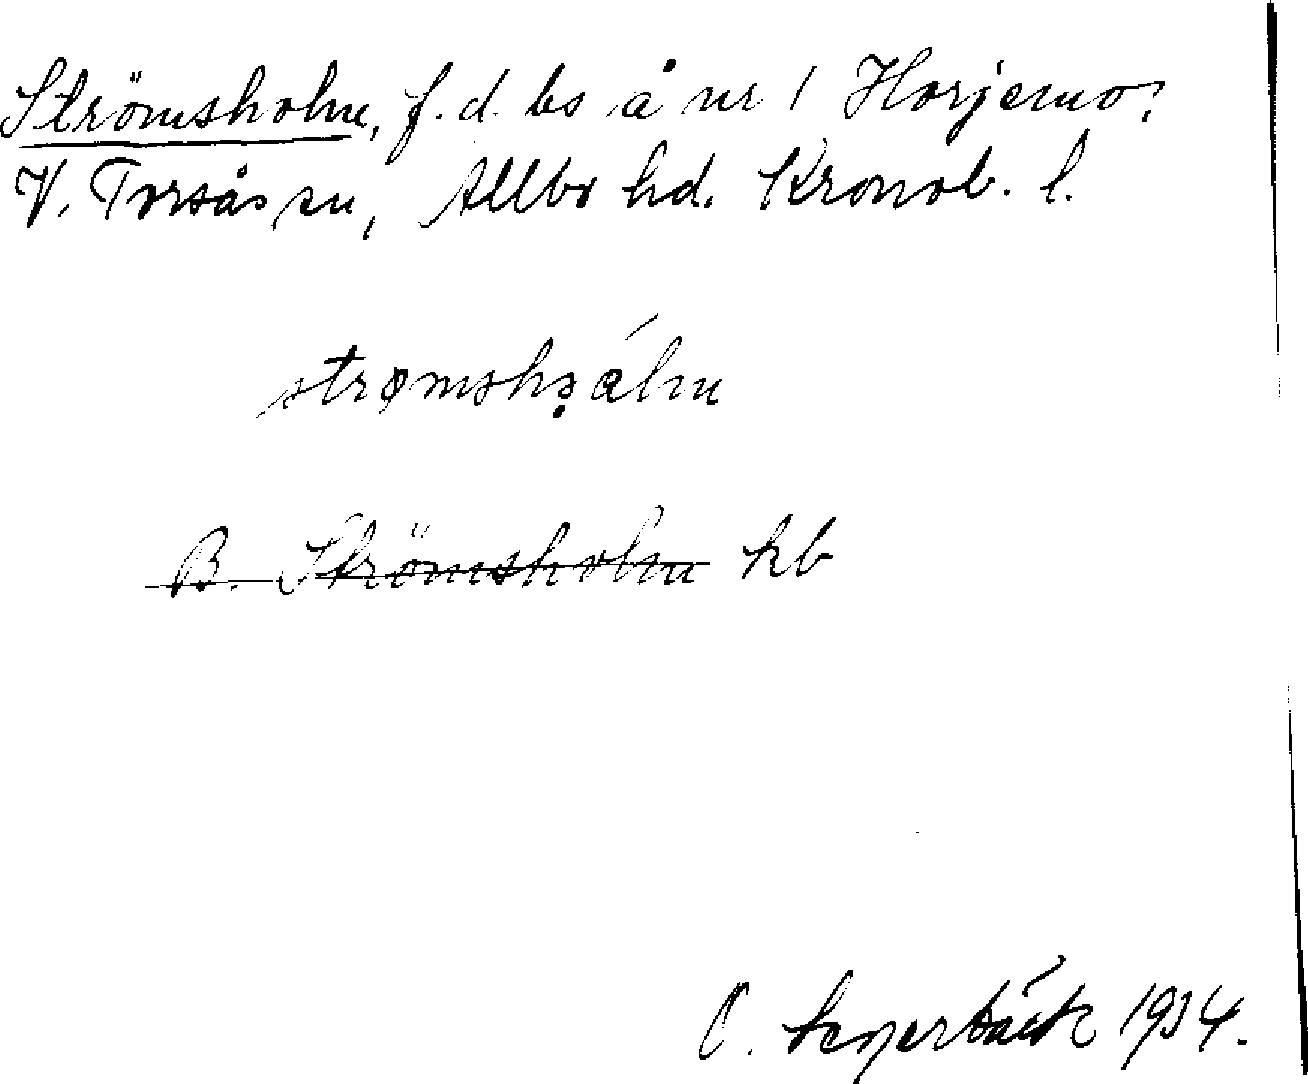 Strömsholm, f.d. bs å nr 1 Horjemo,
V. Torsås sn, Allbo hd. Kronob. l.
strømshə̣álm
B. Strömsholm kb
C. 1934.